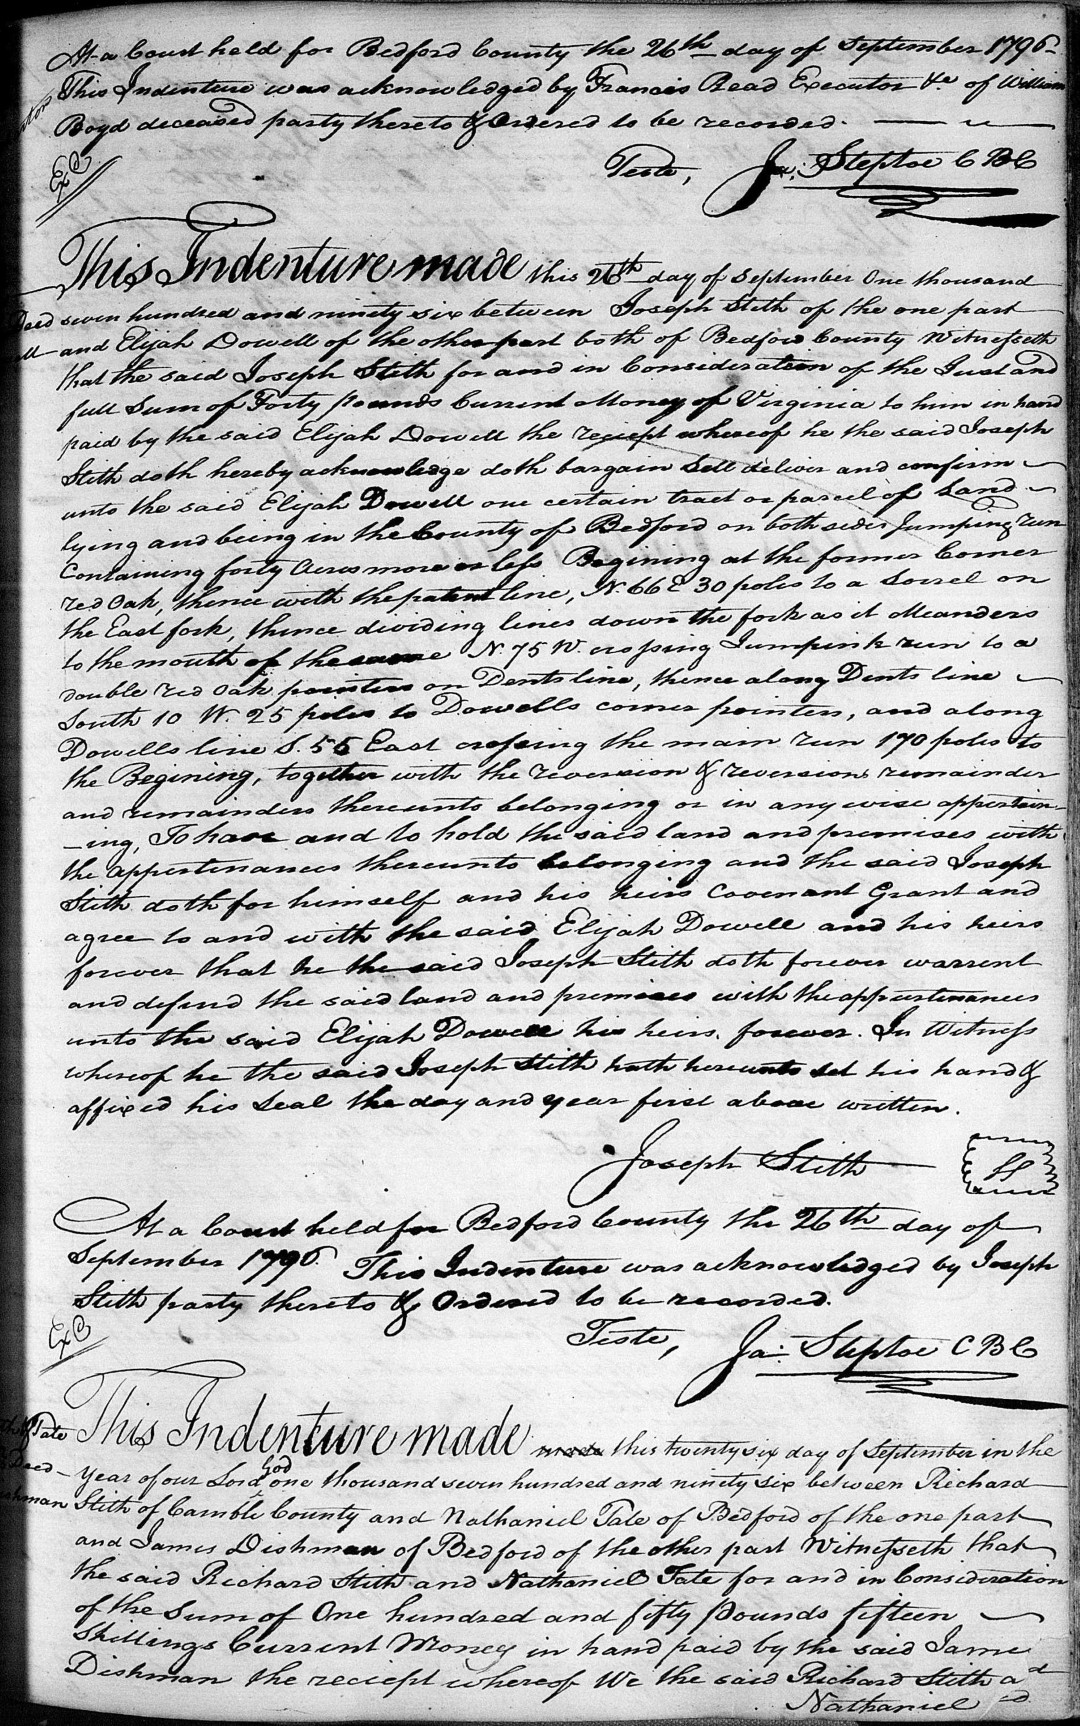 At a Court held for Bedford County the 26th day of September 1796
This Indenture was acknowledged by Francis Read Executor &c of William
Boyd deceased party thereto & Ordered to be recorded.
ExC
Teste, Ja: Steptoe C B C
This Indenture made this 26th day of September One thousand
Deed seven hundred and ninety six between Joseph Stith of the one part
and Elijah Dowell of the other part both of Bedford County Witnesseth
that the said Joseph Stith for and in Consideration of the Just and
full Sum of Forty pounds Current Money of Virginia to him in hand
paid by the said Elijah Dowell the reciept whereof he the said Joseph
Stith doth hereby acknowledge doth bargain Sell deliver and confirm
unto the said Elijah Dowell one certain tract or parcel of Land
lying and being in the County of Bedford on both sides Jumping run
Containing forty Acres more or less Begining at the former Corner
red Oak, thence with the patent line, N. 66 E 30 poles to a Sorrel on
the East fork, thence dividing lines down the fork as it Meanders
to the mouth of the same N. 75 W. crossing Jumpink run to a
double red Oak pointers on Dents line, thence along Dents line
South 10 W. 25 poles to Dowells corner pointers, and along
Dowells line S. 55 East crossing the main run 170 poles to
the Begining, together with the reversion & reversions remainder
and remainders thereunto belonging or in any wise appertain-
-ing, To have and to hold the said land and premises with
the appertinances thereunto belonging and the said Joseph
Stith doth for himself and his heirs Covenant Grant and
agree to and with the said Elijah Dowell and his heirs
forever that he the said Joseph Stith doth forever warrent
and defend the said land and premises with the appurtinances
unto the said Elijah Dowell his heirs forever. In Witness
whereof he the said Joseph Stith hath hereunto set his hand &
affixed his Seal the day and year first above written.
Joseph Stith LS
At a Court held for Bedford County the 26th day of
September 1796. This Indenture was acknowledged by Joseph
Stith party thereto & Ordered to be recorded.
ExC
Teste, Ja: Steptoe C B C
Tate This Indenture made made this twenty six day of September in the
Deed Year of our Lord God one thousand seven hundred and ninety six between Richard
Stith of Camble County and Nathaniel Tate of Bedford of the one part
and James Dishman of Bedford of the other part Witnesseth that
the said Richard Stith and Nathaniel Tate for and in Consideration
of the Sum of One hundred and fifty pounds fifteen
Shillings Current Money in hand paid by the said Jame
Dishman the reciept whereof We the said Richard Stith and
Nathaniel